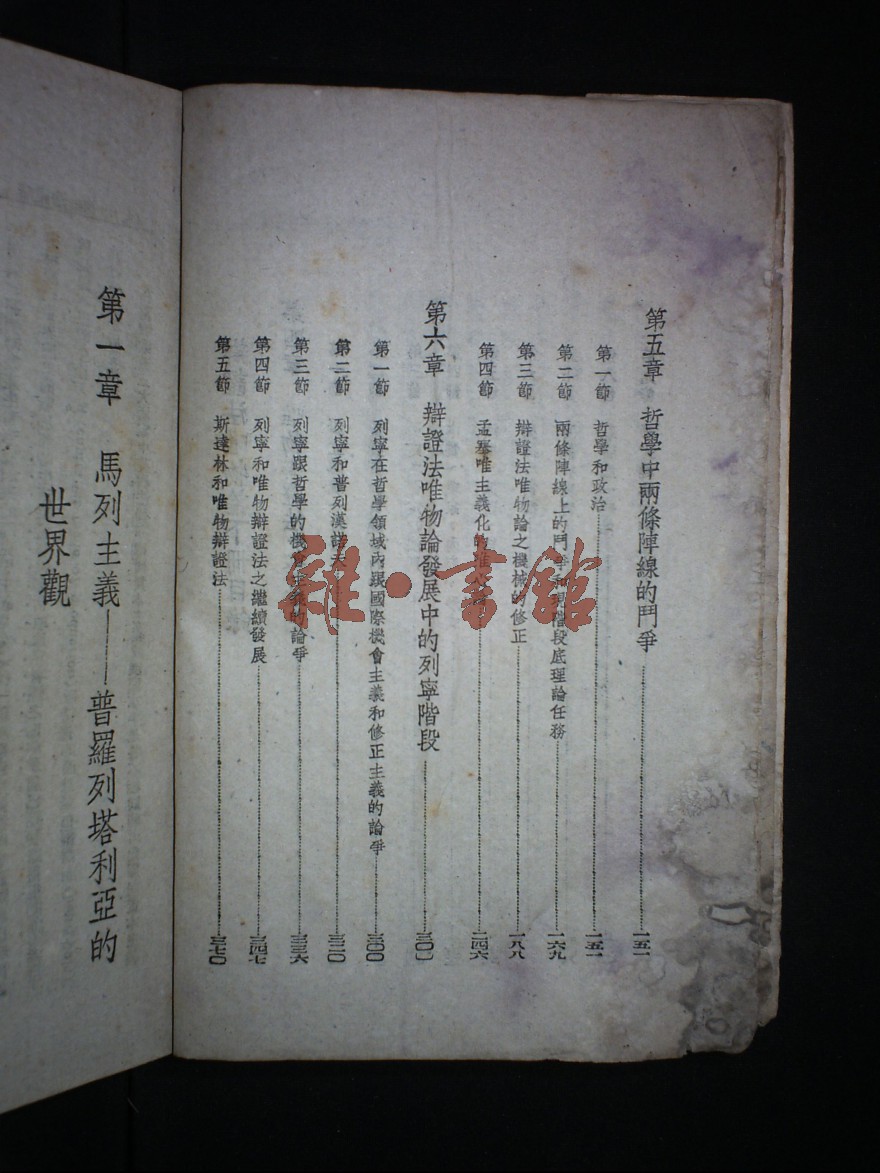 第五章 哲學中兩條陣線的鬥爭 一五一
第一節 哲學和政治 一五一
第二節 兩條陣線上的鬥爭和現階段底理論任務 一六九
第三節 辯證法唯物論之機械的修正 一八八
第四節 孟塞唯主義化的唯 二四六
第六章 辯證法唯物論發展中的列寧階段 三〇〇
第一節 列寧在哲學領域內跟國際機會主義和修正主義的論爭 三〇〇
第二節 列寧和普列漢諾夫 三二〇
第三節 列寧跟哲學的機會主義的論爭 三三六
第四節 列寧和唯物辯證法之繼續發展 三四七
第五節 斯達林和唯物辯證法 三七〇
第一章 馬列主義——普羅列塔利亞的
世界觀
雜·書館